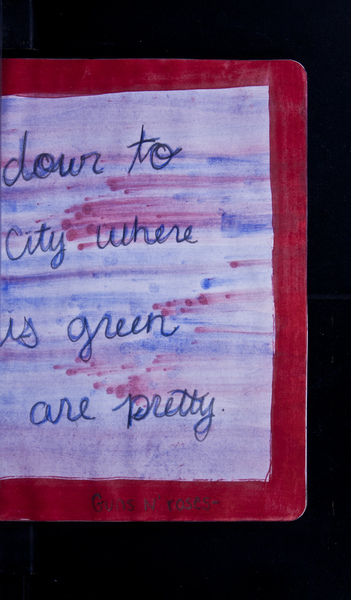 down to
City where
is green
are pretty.